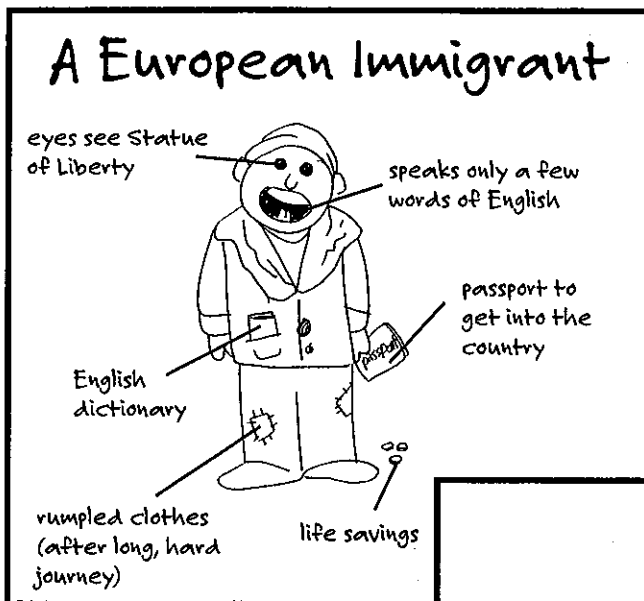 A European Immigrant
eyes see Statue
of Liberty
speaks only a few
words of English
passport to
get into the
country
passport
English
dictionary
rumpled clothes
(after long, hard
journey)
life savings